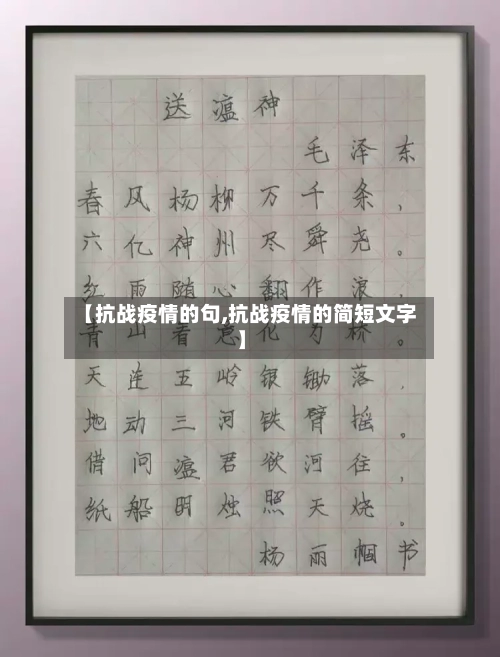 送瘟神
毛泽东
春风杨柳万千条，
六亿神州尽舜尧。
红雨随心翻作浪，
【抗战疫情的句,抗战疫情的简短文字
】
青山着意化为桥。
天连五岭银锄落，
地动三河铁臂摇。
借问瘟君欲河往，
纸船明烛照天烧。
杨丽帼书